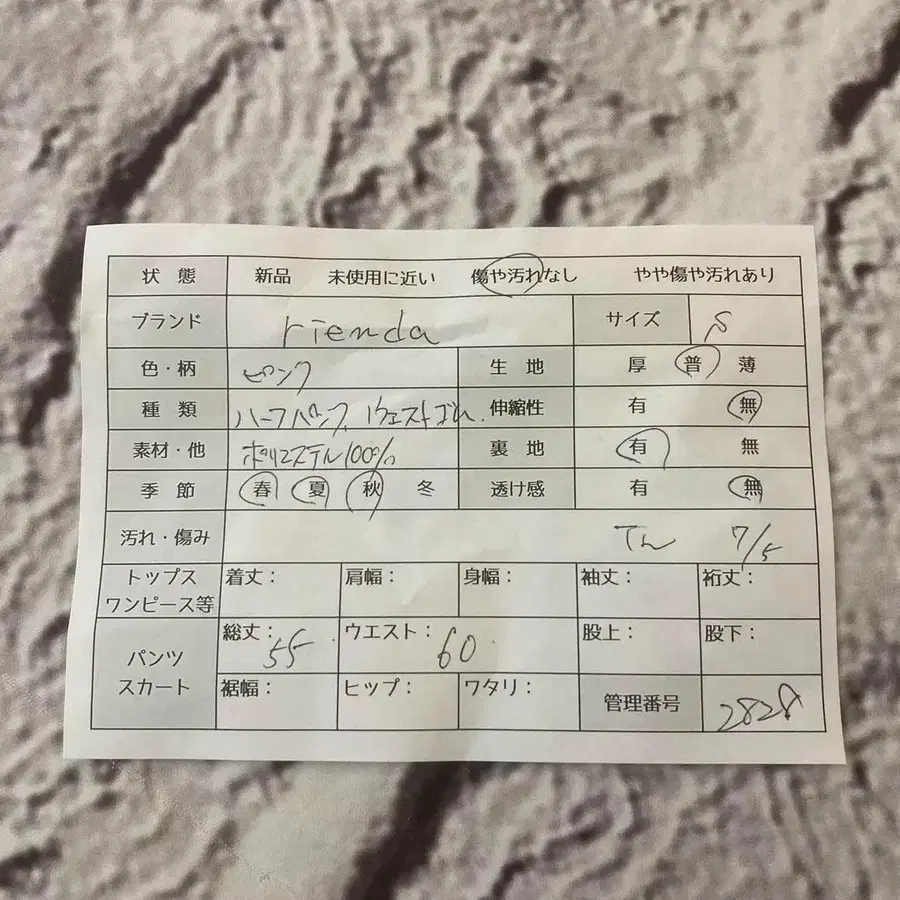 状態 新品 未使用に近い 傷や汚れなし やや傷や汚れあり
ブランド rienda サイズ S
色・柄 ピンク 生地 厚 普 薄
種類 ハーフパンツ、ウエストゴム 伸縮性 有 無
素材・他 ポリエステル100% 裏地 有 無
季節 春 夏 秋 冬 透け感 有 無
汚れ・傷み 7/5
トップス ワンピース等 着丈： 肩幅： 身幅： 袖丈： 裄丈：
パンツ スカート 総丈：55 ウエスト：60 股上： 股下：
裾幅： ヒップ： ワタリ： 管理番号 2828